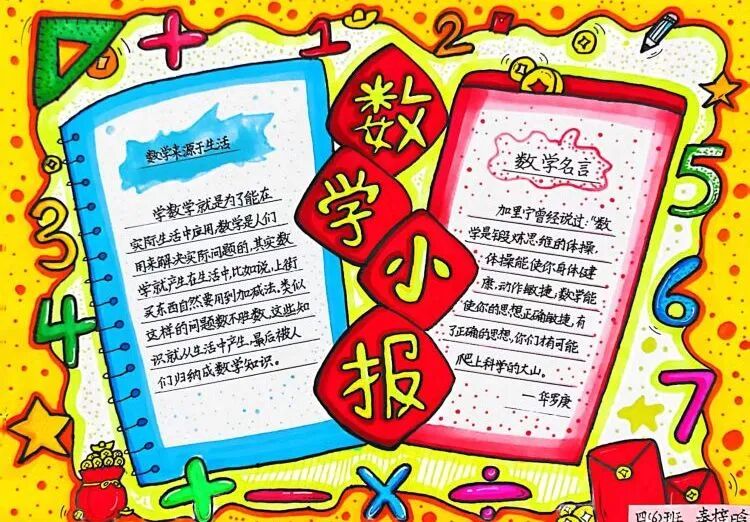 数学小报
1
2
3
4
5
6
7
+
+ − × ÷
数学来源于生活
学数学就是为了能在
实际生活中应用,数学是人们
用来解决实际问题的,其实数
学就产生在生活中,比如说,上街
买东西自然要用到加减法,类似
这样的问题数不胜数,这些知
识就从生活中产生,最后被人
们归纳成数学知识。
数学名言
加里宁曾经说过:“数
学是锻炼思维的体操,
体操能使你身体健
康,动作敏捷,数学能
使你的思想正确敏捷,有
了正确的思想,你们才有可能
爬上科学的大山。
—华罗庚